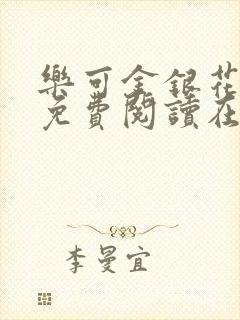 樂可金銀花
免費閱讀在
李曼宜